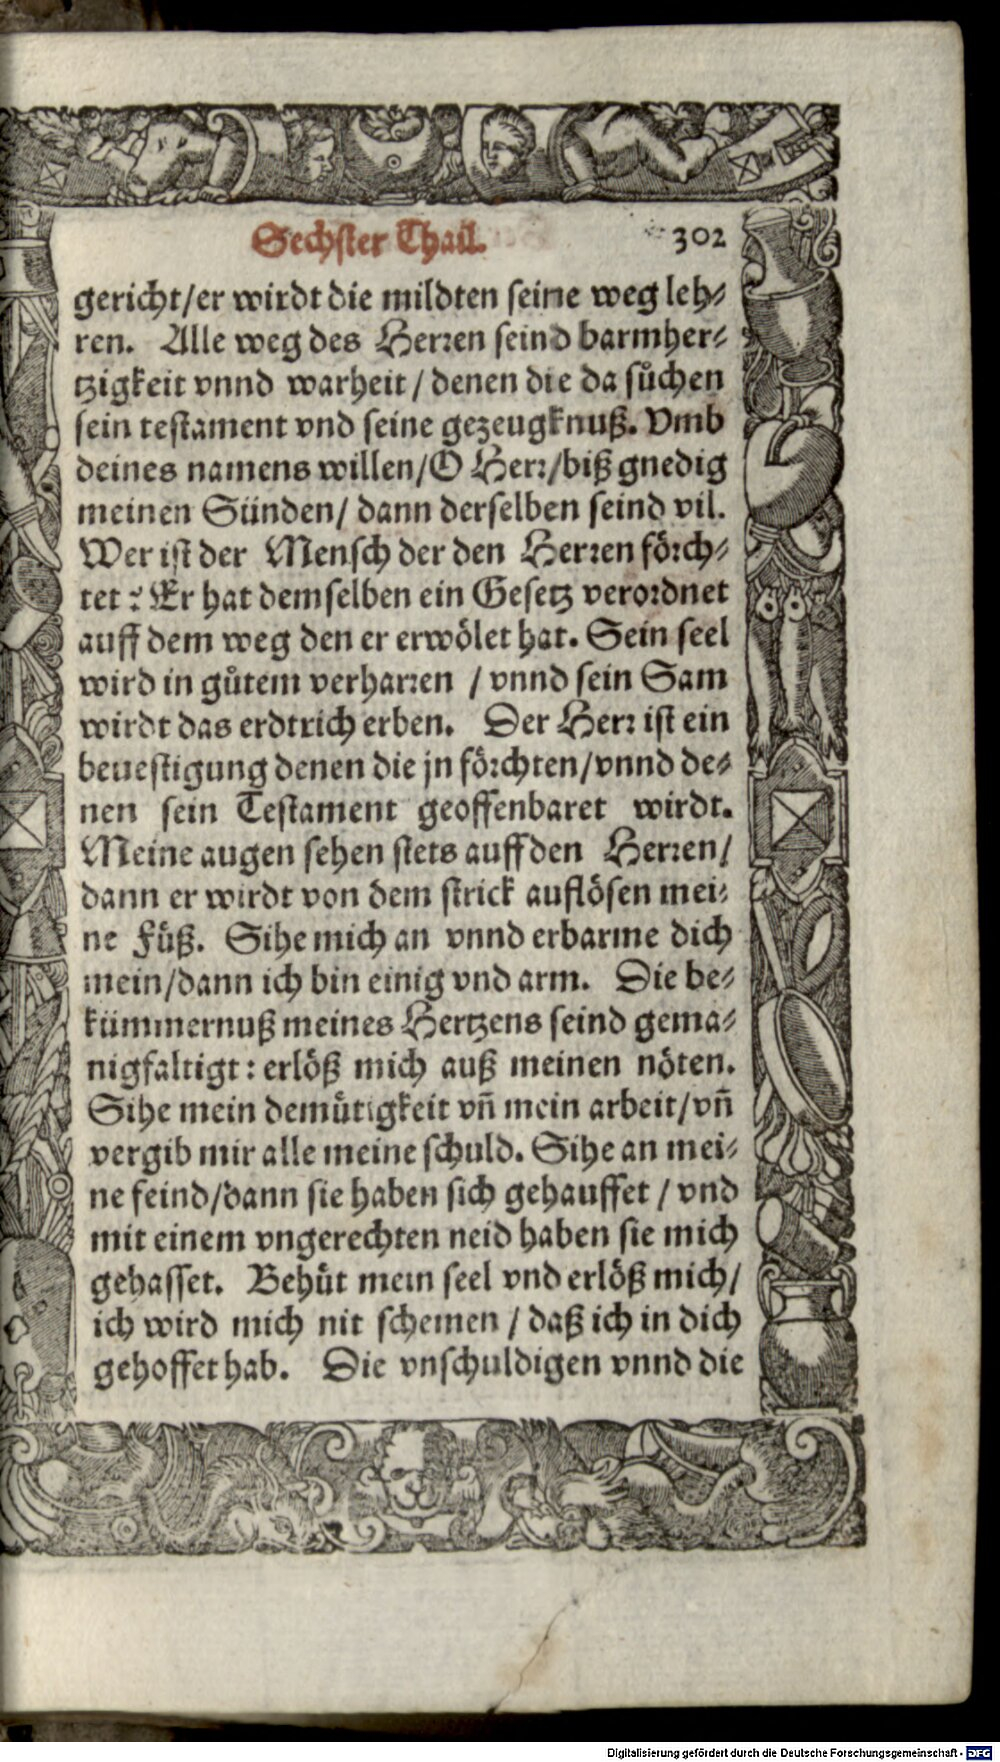 Sechster Thail. 302
gericht/er wirdt die mildten seine weg leh⸗
ren. Alle weg des Herren seind barmher⸗
tzigkeit vnnd warheit / denen die da sůchen
sein testament vnd seine gezeugknuß. Vmb
deines namens willen/O Herr/biß gnedig
meinen Sünden/ dann derselben seind vil.
Wer ist der Mensch der den Herren förch⸗
tet? Er hat demselben ein Gesetz verordnet
auff dem weg den er erwölet hat. Sein seel
wird in gůtem verharren / vnnd sein Sam
wirdt das erdtrich erben. Der Herr ist ein
beuestigung denen die jn förchten/vnnd de⸗
nen sein Testament geoffenbaret wirdt.
Meine augen sehen stets auff den Herren/
dann er wirdt von dem strick auflösen mei⸗
ne Füß. Sihe mich an vnnd erbarme dich
mein/dann ich bin einig vnd arm. Die be⸗
kümmernuß meines Hertzens seind gema⸗
nigfaltigt: erlöß mich auß meinen nöten.
Sihe mein demütigkeit vñ mein arbeit/vñ
vergib mir alle meine schuld. Sihe an mei⸗
ne feind/dann sie haben sich gehauffet / vnd
mit einem vngerechten neid haben sie mich
gehasset. Behüt mein seel vnd erlöß mich/
ich wird mich nit schemen / daß ich in dich
gehoffet hab. Die vnschuldigen vnnd die
Digitalisierung gefördert durch die Deutsche Forschungsgemeinschaft - DFG